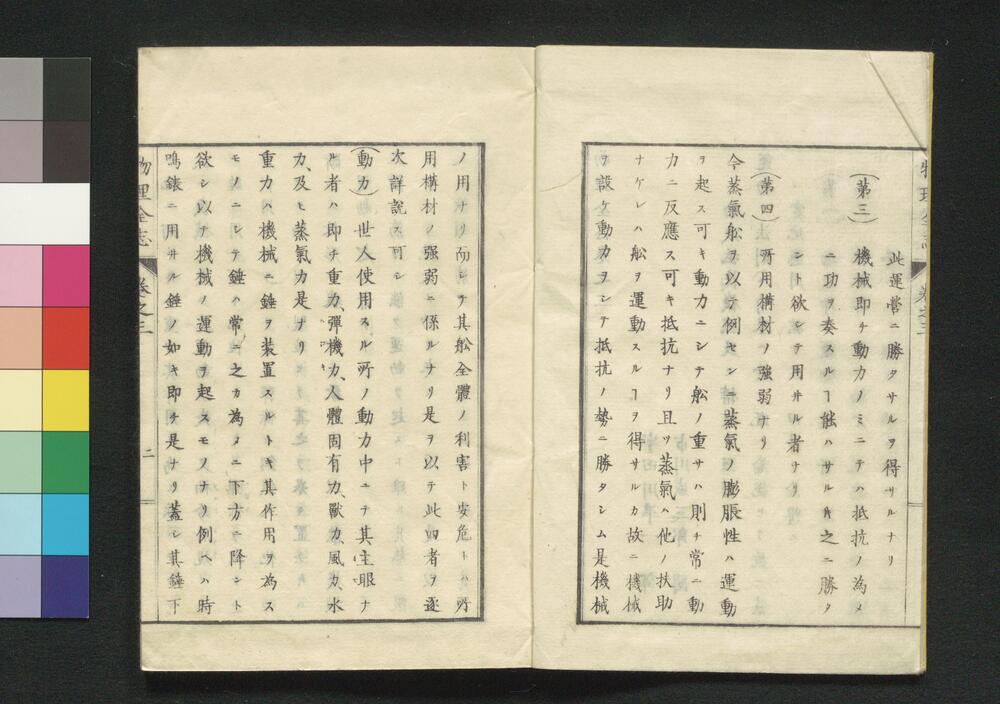 此運営ニ勝タサルヲ得サルナリ
(第三)　機械即チ動力ノミニテハ抵抗ノ為メ
ニ功ヲ奏スルヿ能ハサル片之ニ勝タ
ント欲シテ用井ル者ナリ
(第四)　所用構材ノ強弱ナリ
今蒸氣舩ヲ以テ例セン二蒸氣ノ膨脹性ハ運動
ヲ起ス可キ動力ニシテ舩ノ重サハ則チ常ニ動
力ニ反應ス可キ抵抗ナリ且ツ蒸氣ハ他ノ扶助
ナケレハ舩ヲ運動スルヿヲ得サルカ故ニ機械
ヲ設ケ動力ヲシテ抵抗ノ勢ニ勝タシム是機械
ノ用ナリ而シテ其舩全體ノ利害ト安危トハ所
用構材ノ強弱ニ係ルナリ是ヲ以テ此四者ヲ逐
次詳説ス可シ
(動力)世人使用スル所ノ動力中ニテ其主眼ナ
ル者ハ即チ重力、彈機力、人體固有力、獸力、風力、水
力、及ヒ蒸氣力是ナリ
重力ハ機械ニ錘ヲ装置スルトキ其作用ヲ為ス
モノニシテ錘ハ常ニ之カ為メニ下方ニ降ント
欲シ以テ機械ノ運動ヲ起スモノナリ例ヘハ時
鳴錶ニ用井ル錘ノ如キ即チ是ナリ蓋シ其錘下
物理全志　卷之三　二